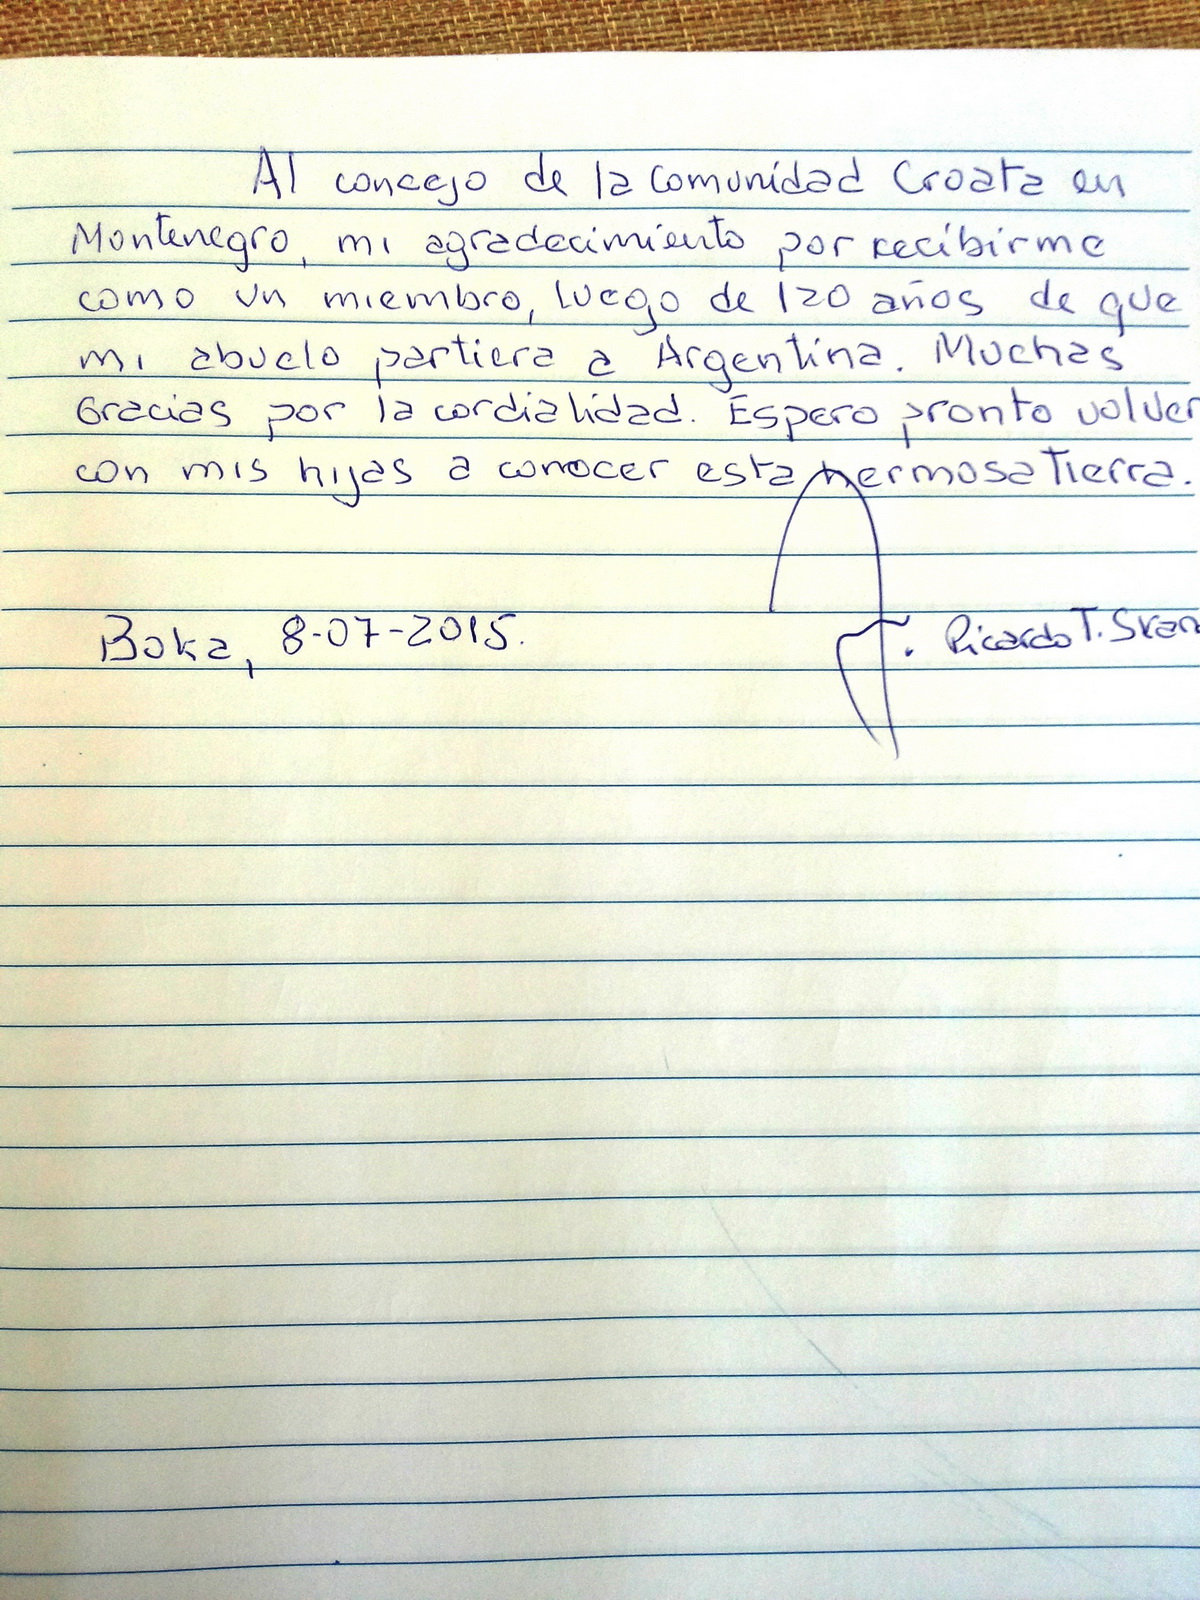 Al concejo de la Comunidad Croata en
Montenegro, mi agradecimiento por recibirme
como un miembro, luego de 120 años de que
mi abuelo partiera a Argentina. Muchas
Gracias por la cordialidad. Espero pronto volver
con mis hijas a conocer esta hermosa Tierra.
Boka, 8-07-2015. Ricardo T.